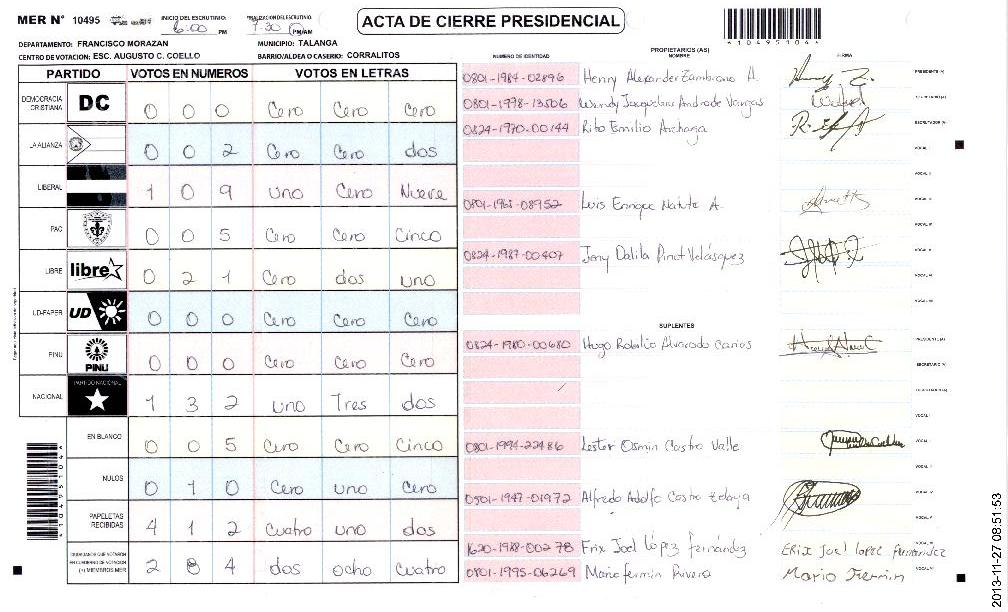 MER N° 10495 INICIO DEL ESCRUTINIO: 6:00 PM FINALIZACION DEL ESCRUTINIO: 7:30 PM/AM
ACTA DE CIERRE PRESIDENCIAL
*10495106*
DEPARTAMENTO: FRANCISCO MORAZAN MUNICIPIO: TALANGA
CENTRO DE VOTACION: ESC. AUGUSTO C. COELLO BARRIO/ALDEA O CASERIO: CORRALITOS
PARTIDO VOTOS EN NUMEROS VOTOS EN LETRAS
DEMOCRACIA CRISTIANA DC 0 0 0 Cero Cero Cero
LA ALIANZA 0 0 2 Cero Cero dos
LIBERAL 1 0 9 uno Cero Nueve
PAC 0 0 5 Cero Cero Cinco
LIBRE libre 0 2 1 Cero dos uno
UD-FAPER UD 0 0 0 Cero Cero Cero
PINU PINU 0 0 0 Cero Cero Cero
NACIONAL PARTIDO NACIONAL 1 3 2 uno Tres dos
EN BLANCO 0 0 5 Cero Cero Cinco
NULOS 0 1 0 Cero uno Cero
PAPELETAS RECIBIDAS 4 1 2 Cuatro uno dos
CIUDADANOS QUE VOTARON EN CUADERNO DE VOTACION (+) MIEMBROS MER 2 8 4 dos ocho Cuatro
NUMERO DE IDENTIDAD PROPIETARIOS (AS) NOMBRE FIRMA
0801-1984-02896 Henry Alexander Zambrano A. PRESIDENTE (A)
0801-1978-13506 Wendy Jacqueline Andrade Vargas SECRETARIO (A)
0824-1970-00144 Rito Emilio Archaga ESCRUTADOR (A)
VOCAL I
VOCAL II
0801-1965-08952 Luis Enrique A.
0824-1987-00407 Jeny Dalila Velásquez
SUPLENTES
0824-1980-00680 Hugo Robilio Alvarado PRESIDENTE (A)
SECRETARIO (A)
ESCRUTADOR (A)
VOCAL I
0801-1994-22486 Lester Osmin Castro Valle
0501-1947-01972 Alfredo Adolfo Castro Zelaya
1620-1988-00278 Erix Joel López fernández Erix Joel lopez Fernandez
0801-1995-06269 Mario fermin Rivera Mario Fermin
2013-11-27 08:51:53